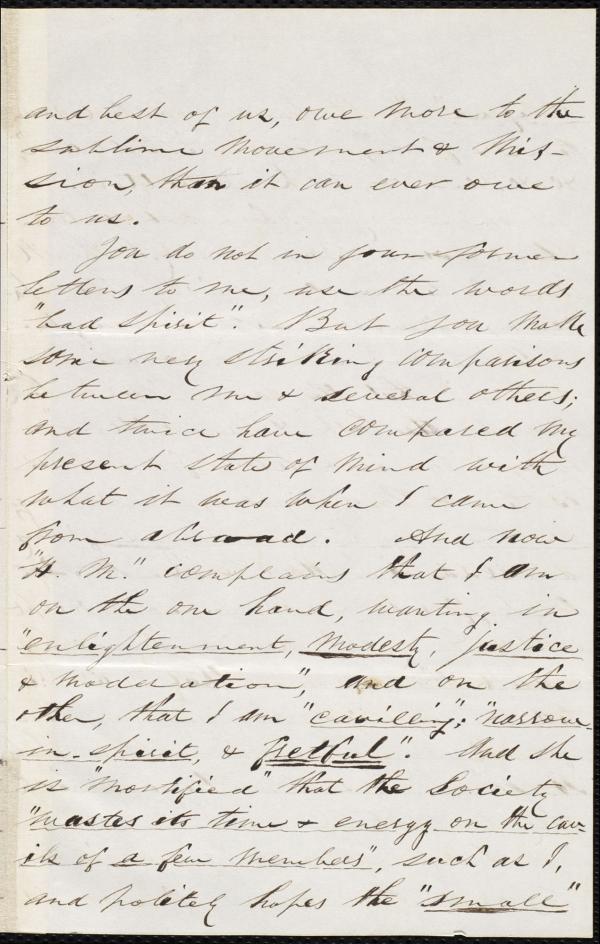 and best of us, owe more to the
sublime Movement & Mis-
sion, than it can ever owe
to us.
You do not in your former
letters to me, use the words
"bad spirit". But you make
some very striking comparisons
between me & several others;
and twice have compared my
present state of mind with
what it was when I came
from abroad. And now
"H. M." complains that I am
on the one hand, wanting in
"enlightenment, modesty, justice
& moderation", and on the
other, that I am "cavilling"; "narrow-
in-spirit, & fretful". And she
is "mortified" that the Society
"wastes its time & energy on the cav-
ils of a few members", such as I,
and politely hopes the "small"